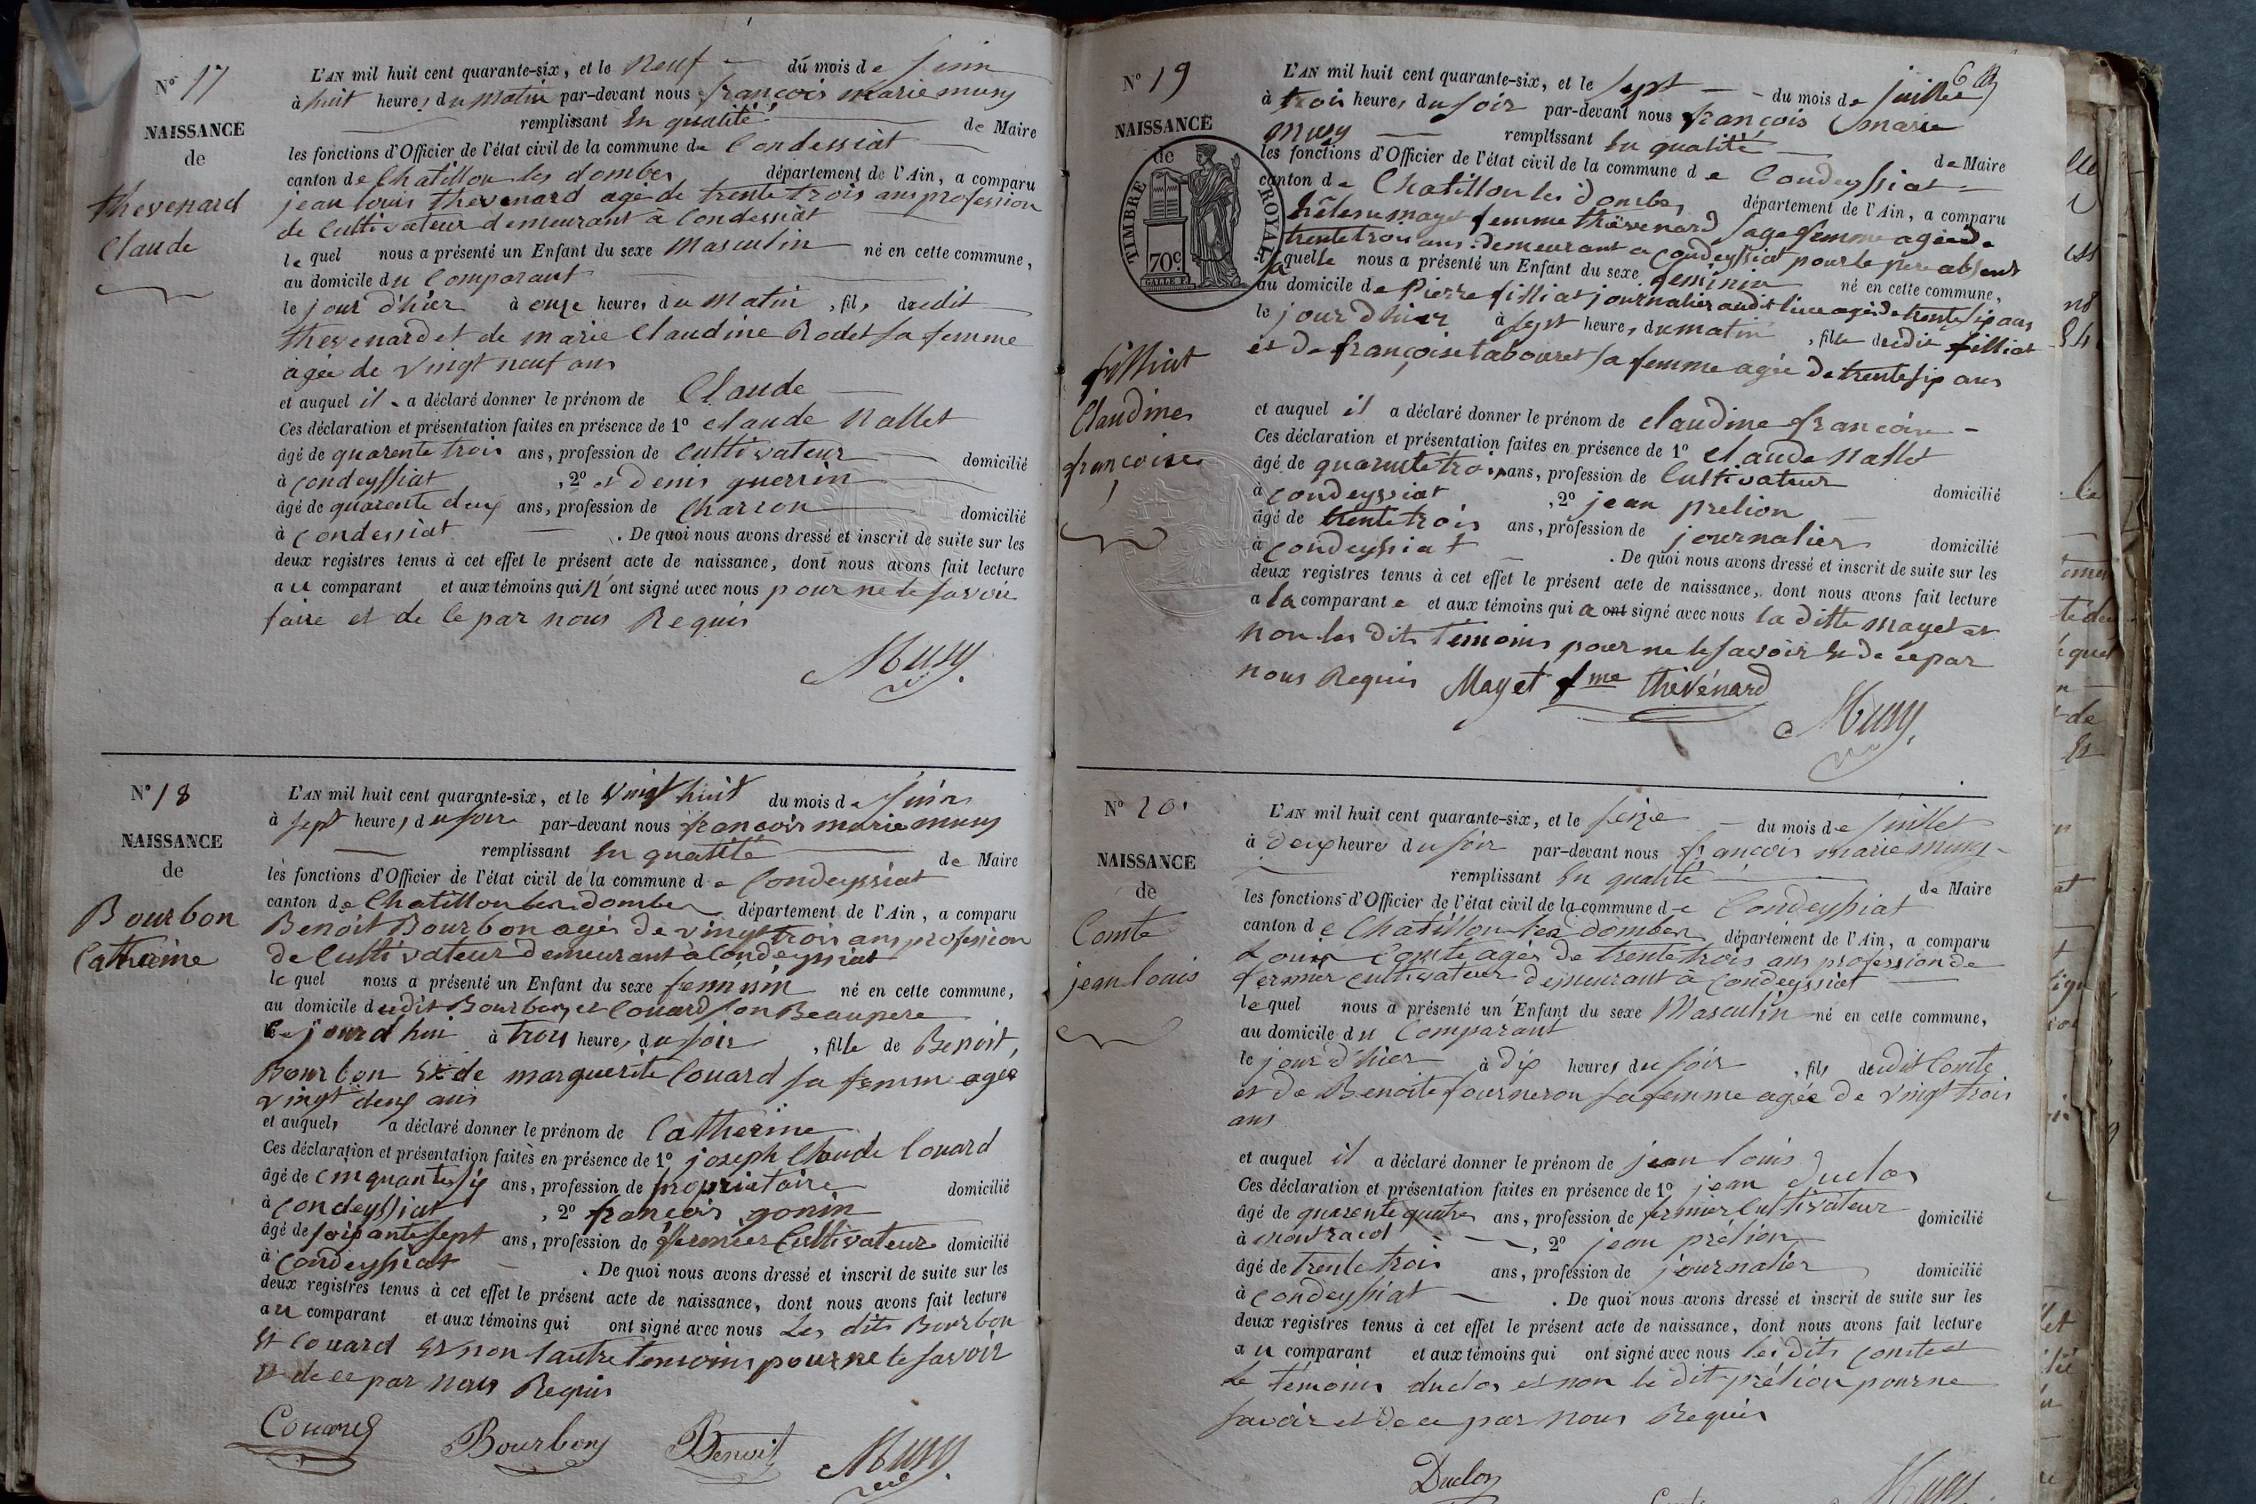 N° 17
NAISSANCE
de
thevenard
Claude
L'AN mil huit cent quarante-six, et le neuf du mois de juin
à huit heures du matin par-devant nous françois marie musy
remplissant En qualité de Maire
les fonctions d'Officier de l'état civil de la commune de Condessiat
canton de Chatillon les dombes département de l'Ain, a comparu
jean louis thevenard agé de trente trois ans profession
de Cultivateur demeurant à Condessiat
le quel nous a présenté un Enfant du sexe Masculin né en cette commune,
au domicile du Comparant
le jour d'hier à onze heures du Matin, fils dudit
thevenard et de marie Claudine Rodet sa femme
agée de vingt neuf ans
et auquel il a déclaré donner le prénom de Claude
Ces déclaration et présentation faites en présence de 1° claude Nallet
âgé de quarente trois ans, profession de Cultivateur domicilié
à condeyssiat, 2° et denis guerrin
âgé de quarente deux ans, profession de Charron domicilié
à Condessiat. De quoi nous avons dressé et inscrit de suite sur les
deux registres tenus à cet effet le présent acte de naissance, dont nous avons fait lecture
au comparant et aux témoins qui N'ont signé avec nous pour ne le savoir
faire et de ce par nous Requis
Musy
N° 18
NAISSANCE
de
Bourbon
Catherine
L'AN mil huit cent quarante-six, et le vingt huit du mois de juin
à sept heures du soir par-devant nous françois marie musy
remplissant En qualité de Maire
les fonctions d'Officier de l'état civil de la commune de Condeyssiat
canton de Chatillon les dombes département de l'Ain, a comparu
Benoit Bourbon agés de vingt trois ans profession
de Cultivateur demeurant à Condeyssiat
le quel nous a présenté un Enfant du sexe feminin né en cette commune,
au domicile dudit Bourbon et Couard son Beaupere
le jourd'hui à trois heures du soir, fille de Benoit,
Bourbon Et de marguerite Couard sa femme agée
vingt deux ans
et auquel a déclaré donner le prénom de Catherine
Ces déclaration et présentation faites en présence de 1° joseph Claude Couard
âgé de cinquante six ans, profession de proprietaire domicilié
à condeyssiat, 2° françois gonin
âgé de soixante sept ans, profession de fermier Cultivateur domicilié
à Condeyssiat. De quoi nous avons dressé et inscrit de suite sur les
deux registres tenus à cet effet le présent acte de naissance, dont nous avons fait lecture
au comparant et aux témoins qui ont signé avec nous Les dits Bourbon
et Couard Et non l'autre temoins pour ne le savoir
et de ce par nous Requis
Couard Bourbon Benoit Musy
N° 19
NAISSANCE
de
TIMBRE ROYAL
70c
filliat
Claudine
françoise
L'AN mil huit cent quarante-six, et le sept du mois de juillet
à trois heures du soir par-devant nous françois marie
musy remplissant En qualité de Maire
les fonctions d'Officier de l'état civil de la commune de Condeyssiat
canton de Chatillon les dombes département de l'Ain, a comparu
hélene mayet femme thévenard sage femme agée de
trente trois ans demeurant a Condeyssiat pour le père absent
la quelle nous a présenté un Enfant du sexe feminin né en cette commune,
au domicile de Pierre filliat journalier audit lieu agé de trente six ans
le jour d'hier à sept heures du matin, fille dudit filliat
et de françoise tabouret sa femme agée de trente six ans
et auquel il a déclaré donner le prénom de claudine françoise
Ces déclaration et présentation faites en présence de 1° claude Nallet
âgé de quarente trois ans, profession de Cultivateur domicilié
à Condeyssiat, 2° jean prelion
âgé de trente trois ans, profession de journalier domicilié
à condeyssiat. De quoi nous avons dressé et inscrit de suite sur les
deux registres tenus à cet effet le présent acte de naissance, dont nous avons fait lecture
a la comparante et aux témoins qui a ont signé avec nous la ditte mayet et
non les dits témoins pour ne le savoir Et de ce par
nous Requis Mayet fme thévénard
Musy
N° 20
NAISSANCE
de
Comte
jean louis
L'AN mil huit cent quarante-six, et le seize du mois de juillet
à deux heures du soir par-devant nous françois marie musy
remplissant En qualité de Maire
les fonctions d'Officier de l'état civil de la commune de Condeyssiat
canton de Chatillon les dombes département de l'Ain, a comparu
Louis Comte agés de trente trois ans profession de
fermier cultivateur demeurant à Condeyssiat
le quel nous a présenté un Enfant du sexe Masculin né en cette commune,
au domicile du Comparant
le jour d'hier à dix heures du soir, fils dudit Comte
et de Benoite fourneron sa femme agée de vingt trois
ans
et auquel il a déclaré donner le prénom de jean louis
Ces déclaration et présentation faites en présence de 1° jean Duclos
âgé de quarente quatre ans, profession de fermier Cultivateur domicilié
à montracol, 2° jean prélion
âgé de trente trois ans, profession de journalier domicilié
à Condeyssiat. De quoi nous avons dressé et inscrit de suite sur les
deux registres tenus à cet effet le présent acte de naissance, dont nous avons fait lecture
au comparant et aux témoins qui ont signé avec nous les dits comte et
le témoins duclos et non le dit prélion pour ne
savoir et de ce par nous Requis
Duclos
Comte Musy